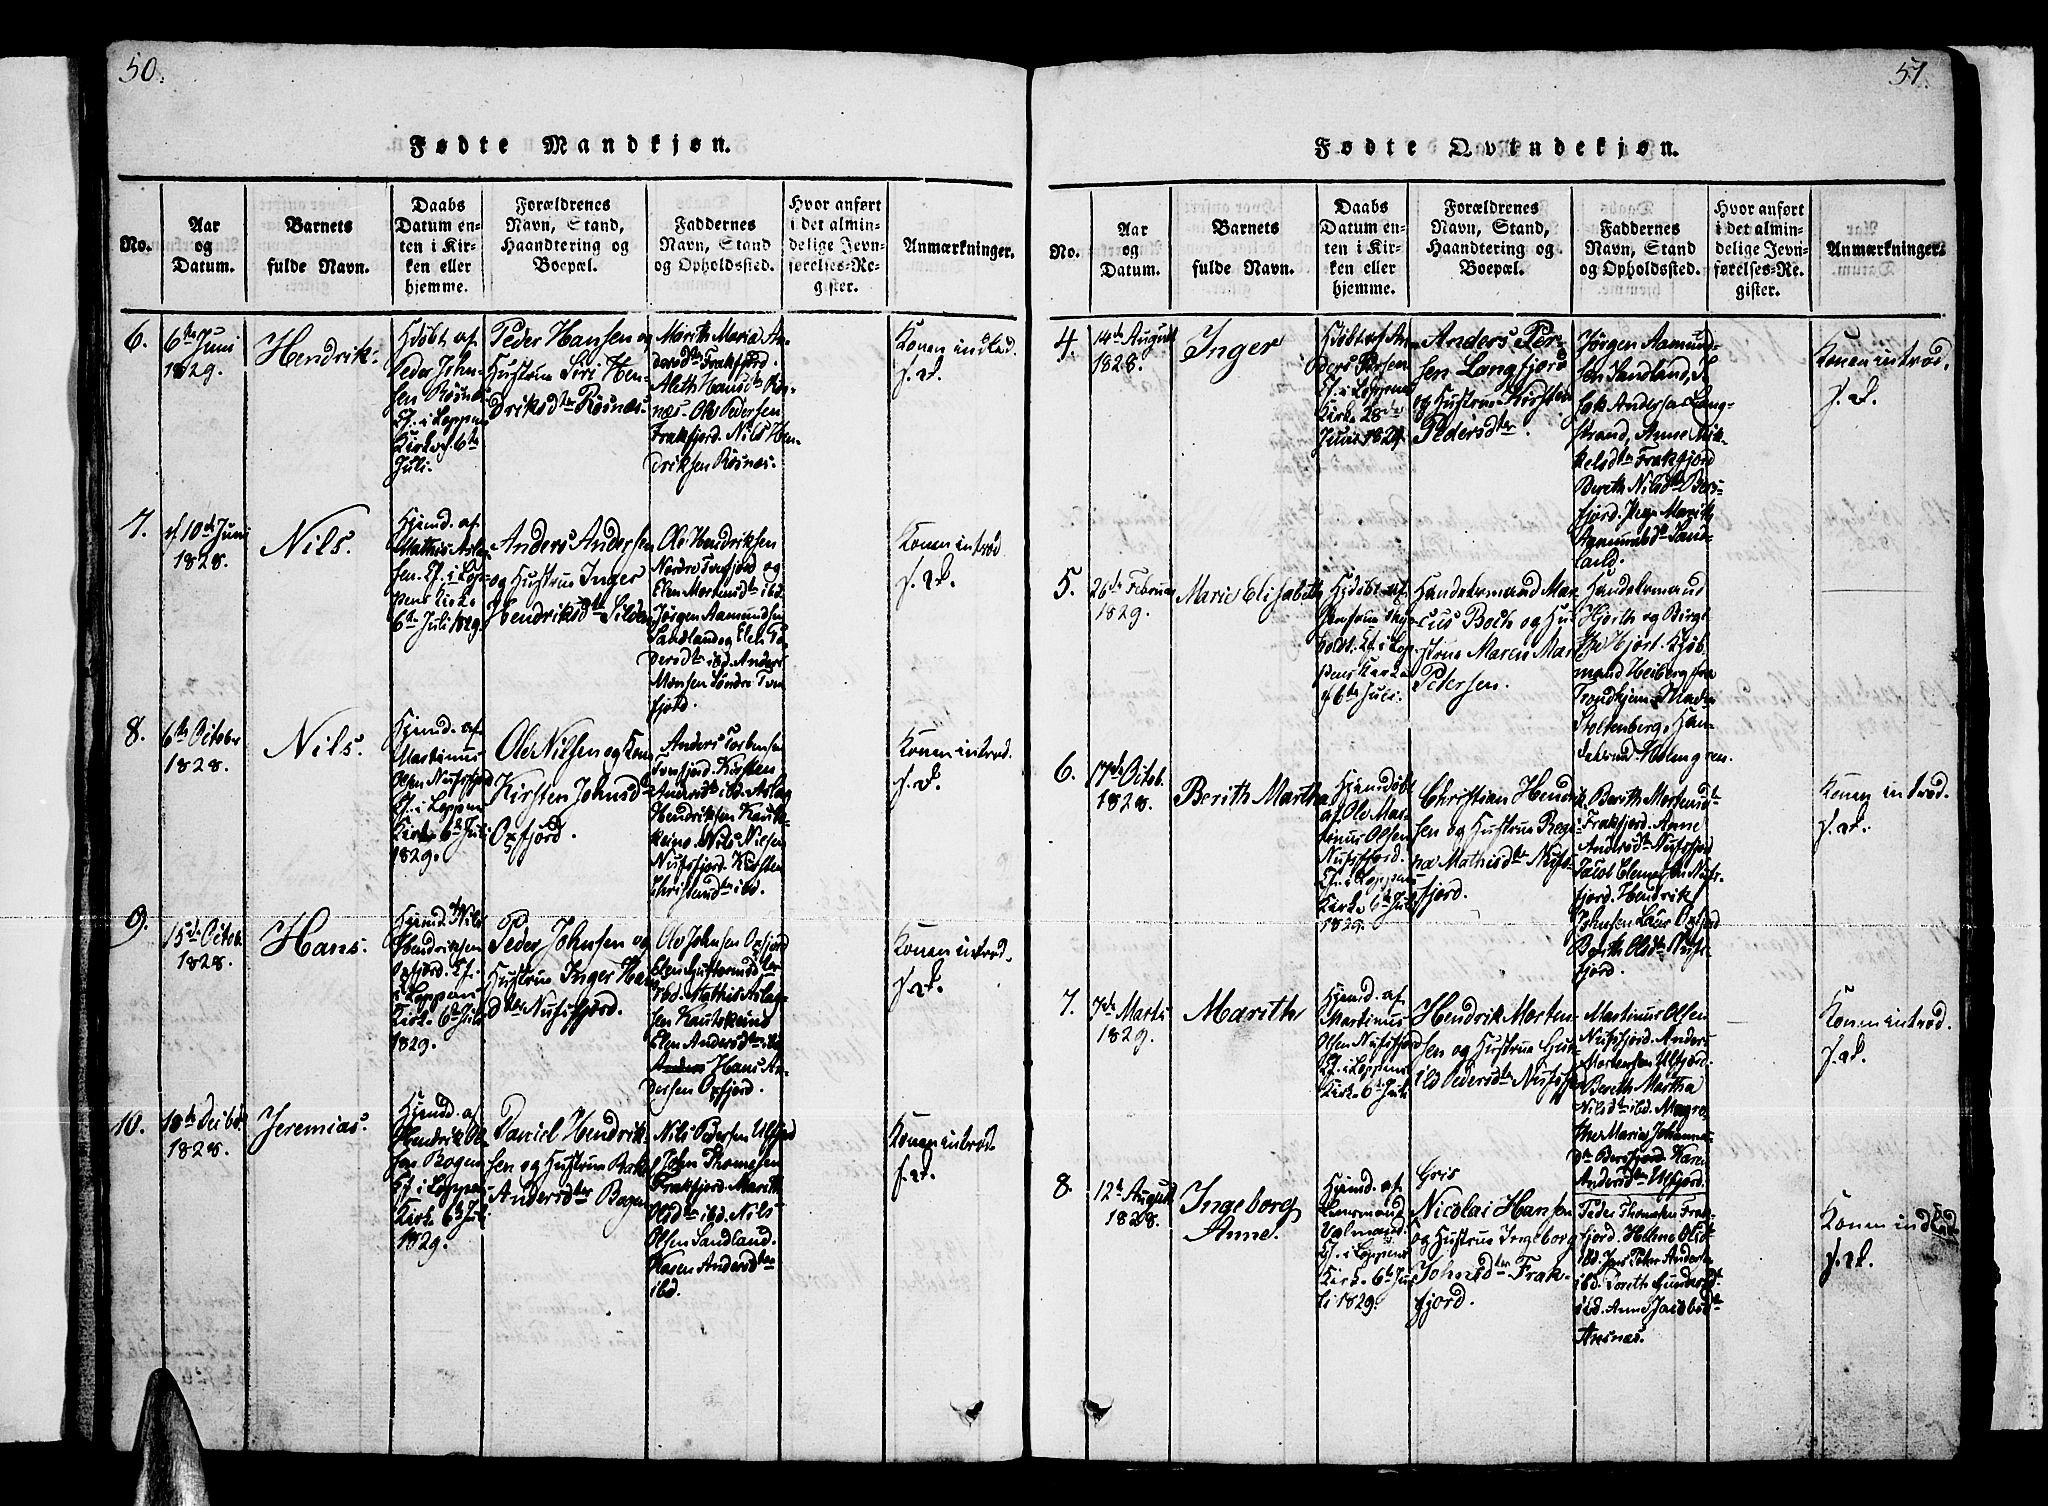 50.
Fødte Mandkjøn.
No.
Aar
og
Datum.
Barnets
fulde Navn.
Daabs
Datum en-
ten i Kir-
ken eller
hjemme.
Forældrenes
Navn, Stand,
Haandtering og
Boepæl.
Faddernes
Navn, Stand
og Opholdssted.
Hvor anført
i det almin-
delige Jevn-
førelses-Re-
gister.
Anmærkninger.
6.
6te Juni
1829.
Hendrik.
Hjdøbt af
Peder John-
sen Røsnes
Cf. i Loppens
Kirke 6te
Juli.
Peder Hansen og
Hustrue Siri Hen-
driksdter Røsnes.
Marith Maria An-
dersdtr Frakfjord.
Aleth Hansdtr Røs-
næs. Ole Pedersen
Frakfjord. Nils Hen-
driksen Røsnes.
Konen indled.
f. d.
7.
10de Juni
1828.
Nils.
Hjemd. af
Mathis Asla-
sen. Cf. i Lop-
pens Kirke
6te Juli 1829.
Anders Andersen
og Hustrue Inger
Hendriksdtr Silden
Ole Hendriksen
Nordre Tverfjord og
Elen Mortensdtr ibd.
Jørgen Aamundsen
Sandland og Elen Pe-
dersdtr ibd. Anders
Monsen Søndre Tver
fjord.
Konen introd.
f. d.
8.
6te October
1828.
Nils.
Hjemd. af
Martinus
Olsen Nufsfjord
Cf. i Loppens
Kirke 6te Juli
1829.
Ole Nilsen og Kone
Kirsten Johnsd
Oxfjord.
Anders Torbensen
Tverfjord. Kirsten
Andersdtr ibd. Aslag
Hendriksen Kauto-
keino. Nils Nilsen
Nufsfjord. Kirsten
Christiansdtr ibd.
Konen introd.
f. d.
9.
15de Octob.
1828.
Hans.
Hjemd. af Nils
Hendriksen
Oxfjord. Cf.
i Loppens
Kirke 6te Juli
1829.
Peder Johnsen og
Hustrue Inger Hans
dter Nufsfjord.
Ole Johnsen Oxfjord
Elen Gustavusdter
ibd. Mathis Aslag-
sen Kautokeino
Elen Andersdtr ibd
Hans An-
dersen Oxfjord.
Konen introd.
f. d.
10.
18de Decbr.
1828.
Jeremias.
Hjemd. af
Hendrik Ol-
sen Bogen
Cf. i Loppen
Kirke 6te Juli
1829.
Daniel Hendrik-
sen og Hustrue
Andersdter Bogen
Nils Pedersen Ulfjord
John Thomesen
Frakfjord. Marith
Olsdtr ibd. Nils
Olsen Sandland.
Karen Andersdter
ibd.
Konen introd.
f. d.
51.
Fødte Qvindekjøn.
No.
Aar
og
Datum.
Barnets
fulde Navn.
Daabs
Datum en-
ten i Kir-
ken eller
hjemme.
Forældrenes
Navn, Stand,
Haandtering og
Boepæl.
Faddernes
Navn, Stand
og Opholdssted.
Hvor anført
i det almin-
delige Jevn-
førelses-Re-
gister.
Anmærkninger.
4.
14de August
1828.
Inger
Hjdøbt af An-
ders Persen
Cf. i Loppens
Kirke 28de
Juni 1829.
Anders Per-
sen Langfjord
og Hustrue Kirsten
Pedersdter.
Jørgen Aamund-
sen Sandland,
Isak Andersen Lang-
strand, Anne Mik-
kelsdtr Frakfjord
Berith Nilsdtr Bers-
fjord. Pige Marith
Aamundsdtr Sand-
land.
Konen introd.
f. d.
5.
26de Februar
1829.
Marie Elisabeth
Hjdøbt af
Cf. i Lop-
pens Kirke
6te Juli.
Handelsmand Mar-
cus Boch og Hu-
strue Maren Mar
Petersen.
Handelsmand
Hjorth og
Hjort. Kjøb-
mand Heiberg fra
Trondhjem.
Stoltenberg, Han-
delsmd. Holmgren.
6.
17de Octob.
1828.
Berith Martha
Hjemdøbt
af Ole Mar-
tinus Olsen
Nufsfjord.
Cf. i Loppens
Kirke 6te Juli
1829.
Christian Hendrik-
sen og Hustrue Regi-
næ Mathisdter Nufs-
fjord.
Berith Mortensdtr
Frakfjord. Anne
Andersdtr Nufsfjord
Jacob Clemetsen Nufs-
fjord. Hendrik
Johnsen Oxfjord
Berith Olsdtr Nufs-
fjord.
Konen introd.
f. d.
7.
7de Marts
1829.
Marith
Hjemd. af
Martinus
Olsen Nufsfjord
Cf. i Loppens
Kirke 6te Juli
Hendrik Morten-
sen og Hustrue Gun-
ild Pedersdter Nufsfjor
Martinus Olsen
Nufsfjord. Anders
Mortensen Ulfjord.
Berith Martha
Nilsdtr ibd. Magre-
the Maria Johannes
dtr Bersfjord. Karen
Andersdtr Ulfjord.
Konen introd.
f. d.
8.
12te August
1828.
Ingeborg
Anne.
Hjemd. af
Lensmand
Cf. i Loppens
Kirke 6te Ju-
li 1829.
Gris
Nicolai Hansen
og Hustrue Ingeborg
Johnsdter Frak-
fjord.
Peder Thomesen Frak-
fjord. Helene Olsdtr
ibd. Jens Peter Andersen
ibd. Dorith
ibd. Anne Jacobsdtr
Aasnæs.
Konen indled
f. d.